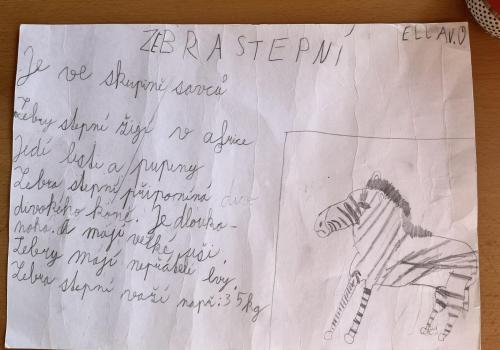 ZEBRA STEPNÍ
ELLA V.
Je ve skupině savců
Zebry stepní žijí v africe
Jedí listi a pupeny
Zebra stepní připomíná
divokého koně. Je dlouko-
noha. A mají velké uši.
Zebry mají nepřátele lvy.
Zebra stepní važí např: 35kg